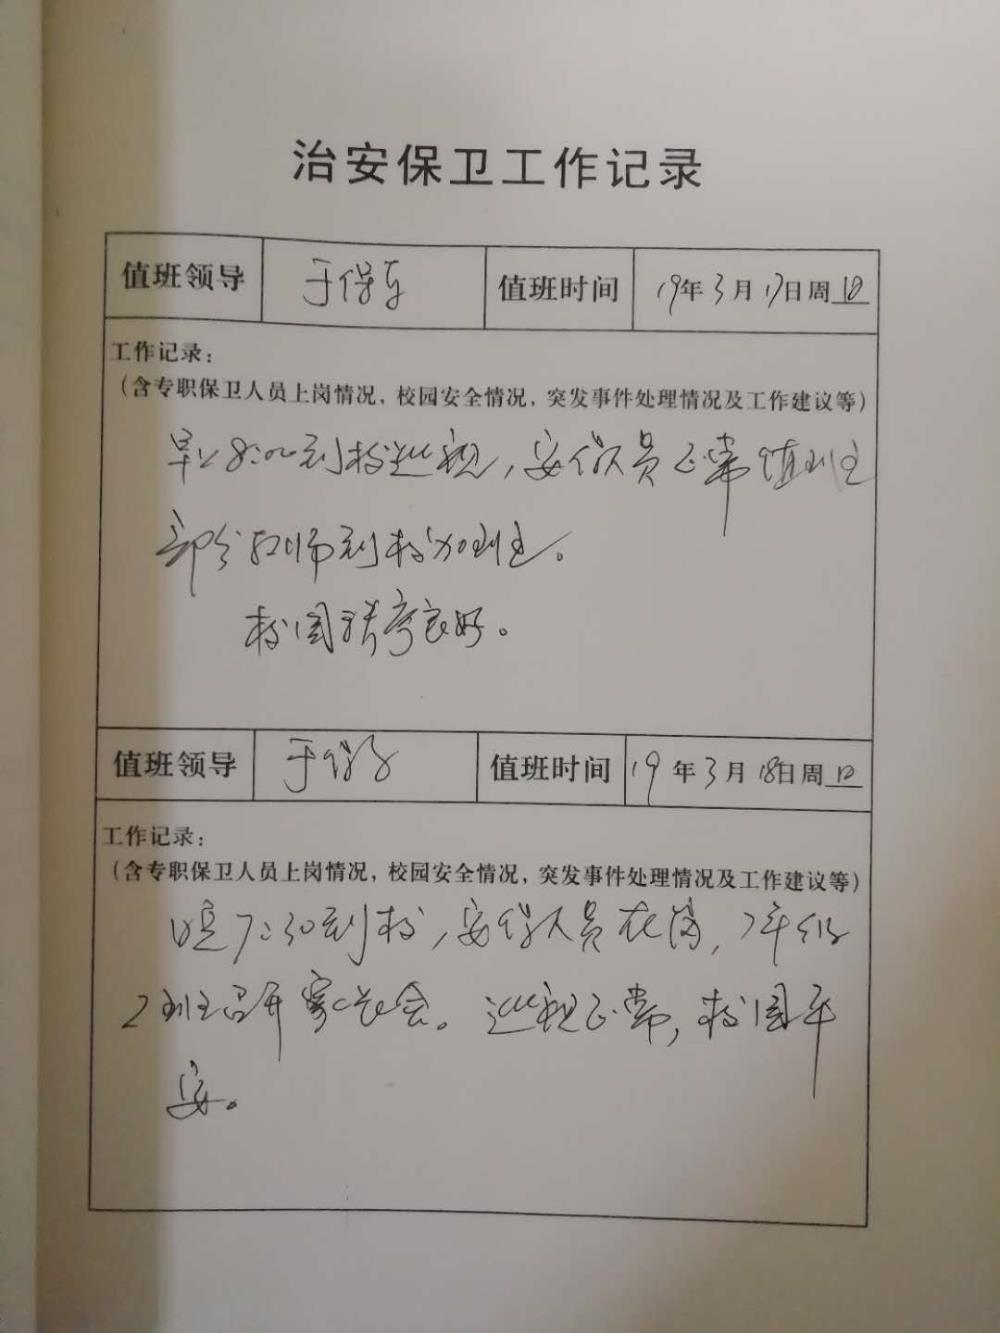 治安保卫工作记录
值班领导 于保 值班时间 19年3月17日周日
工作记录：
（含专职保卫人员上岗情况，校园安全情况，突发事件处理情况及工作建议等）
早上8:00到校巡视，安保人员正常值班
部分教师到校加班。
校园秩序良好。
值班领导 于保 值班时间 19年3月18日周
工作记录：
（含专职保卫人员上岗情况，校园安全情况，突发事件处理情况及工作建议等）
晨7:30到校，安保人员在岗，7年级
2班召开家长会。巡视正常，校园平
安。